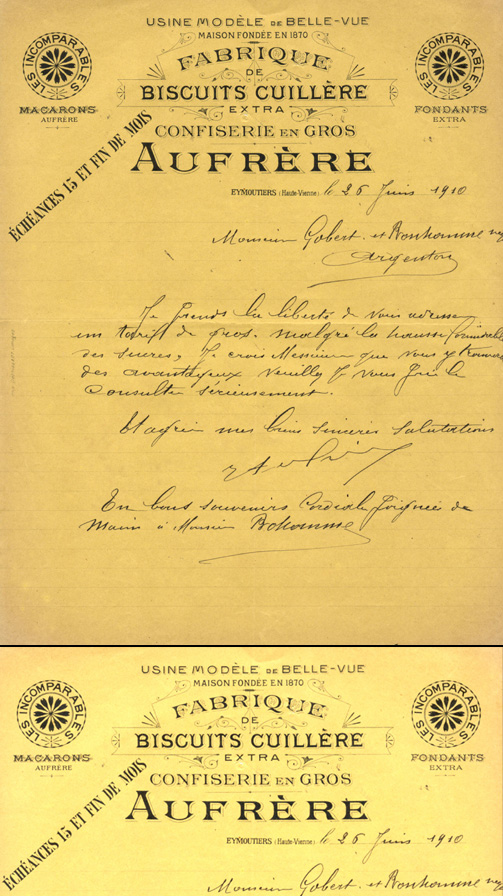 USINE MODÈLE DE BELLE-VUE
MAISON FONDÉE EN 1870
LES INCOMPARABLES
MACARONS
AUFRÈRE
FABRIQUE
DE
BISCUITS CUILLÈRE
EXTRA
CONFISERIE EN GROS
AUFRÈRE
LES INCOMPARABLES
FONDANTS
EXTRA
ÉCHÉANCES 15 ET FIN DE MOIS
EYMOUTIERS (Haute-Vienne) le 26 Juin 1910
Monsieur Gobert et Bonhomme
Argenton
Je prends la liberté de vous adresser
un tarif de gros. malgré la hausse
des sucres, Je crois Messieurs que vous y
des avantageux veuillez Je vous prie le
Consulter sérieusement.
Et agréer mes biens sincères salutations
En bons souvenirs Cordiale poignée de
Main à Monsieur Bohomme
USINE MODÈLE DE BELLE-VUE
MAISON FONDÉE EN 1870
LES INCOMPARABLES
MACARONS
AUFRÈRE
FABRIQUE
DE
BISCUITS CUILLÈRE
EXTRA
CONFISERIE EN GROS
AUFRÈRE
LES INCOMPARABLES
FONDANTS
EXTRA
ÉCHÉANCES 15 ET FIN DE MOIS
EYMOUTIERS (Haute-Vienne) le 26 Juin 1910
Monsieur Gobert et Bonhomme